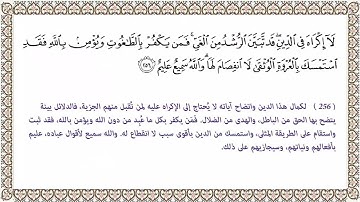 لَآ إِكۡرَاهَ فِي ٱلدِّينِۖ قَد تَّبَيَّنَ ٱلرُّشۡدُ مِنَ ٱلۡغَيِّۚ فَمَن يَكۡفُرۡ بِٱلطَّٰغُوتِ وَيُؤۡمِنۢ بِٱللَّهِ فَقَدِ
ٱسۡتَمۡسَكَ بِٱلۡعُرۡوَةِ ٱلۡوُثۡقَىٰ لَا ٱنفِصَامَ لَهَاۗ وَٱللَّهُ سَمِيعٌ عَلِيمٌ ٢٥٦
( 256 ) لكمال هذا الدين واتضاح آياته لا يُحتاج إلى الإكراه عليه لمن تُقبل منهم الجزية، فالدلائل بينة
يتضح بها الحق من الباطل، والهدى من الضلال. فَمَن يكفر بكل ما عُبِد من دون الله ويؤمن بالله، فقد ثبت
واستقام على الطريقة المثلى، واستمسك من الدين بأقوى سبب لا انقطاع له. والله سميع لأقوال عباده، عليم
بأفعالهم ونياتهم، وسيجازيهم على ذلك.